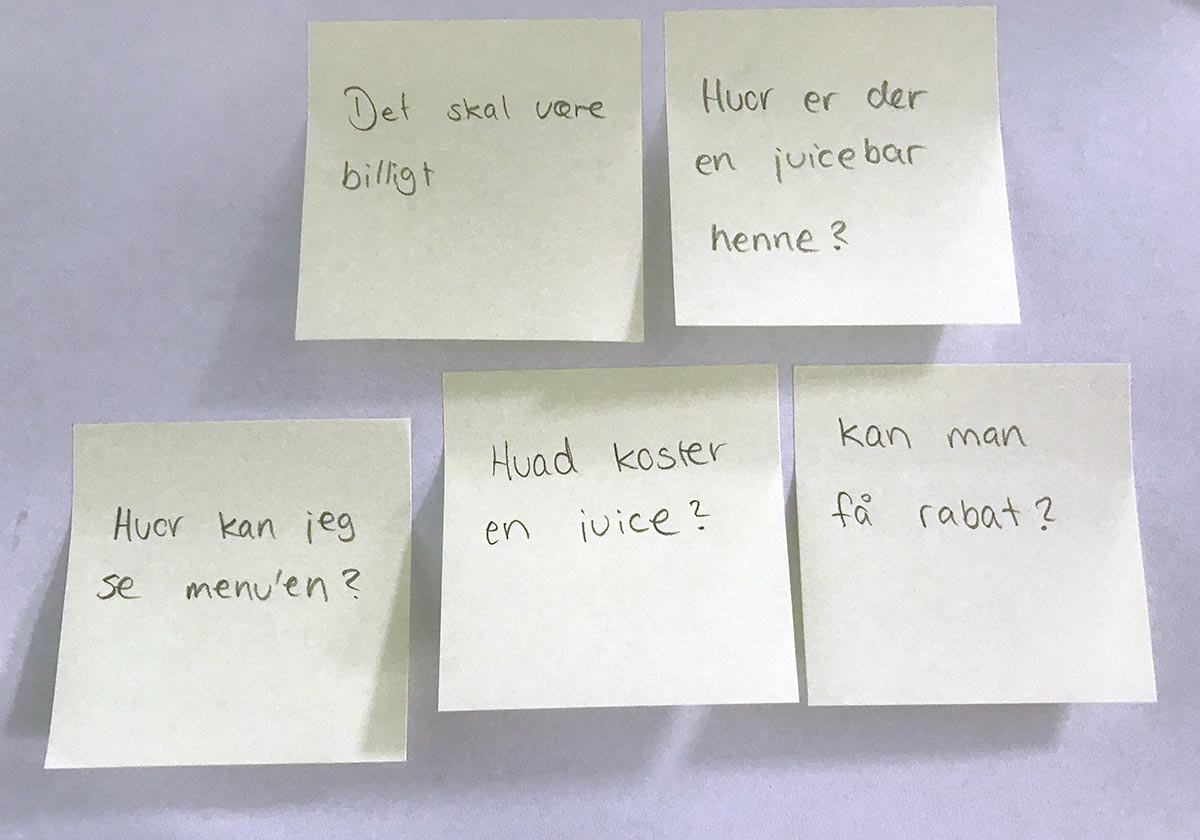 Det skal være
billigt
Hvor er der
en juicebar
henne?
Hvor kan jeg
se menu'en?
Hvad koster
en juice?
kan man
få rabat?